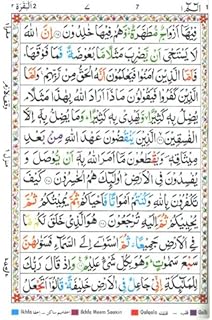 البقرة ٢ 7 الٓمّٓ ١
فِيْهَآ اَزْوَاجٌ مُّطَهَّرَةٌ وَّهُمْ فِيْهَا خٰلِدُوْنَ اِنَّ اللّٰهَ
لَا يَسْتَحْيٖٓ اَنْ يَّضْرِبَ مَثَلًا مَّا بَعُوْضَةً فَمَا فَوْقَهَا فَاَمَّا
الَّذِيْنَ اٰمَنُوْا فَيَعْلَمُوْنَ اَنَّهُ الْحَقُّ مِنْ رَّبِّهِمْ وَاَمَّا
الَّذِيْنَ كَفَرُوْا فَيَقُوْلُوْنَ مَاذَآ اَرَادَ اللّٰهُ بِهٰذَا مَثَلًا
يُضِلُّ بِهٖ كَثِيْرًا وَّيَهْدِيْ بِهٖ كَثِيْرًا وَمَا يُضِلُّ بِهٖٓ اِلَّا
الْفٰسِقِيْنَ الَّذِيْنَ يَنْقُضُوْنَ عَهْدَ اللّٰهِ مِنْۢ بَعْدِ
مِيْثَاقِهٖ وَيَقْطَعُوْنَ مَآ اَمَرَ اللّٰهُ بِهٖٓ اَنْ يُّوْصَلَ وَ
يُفْسِدُوْنَ فِى الْاَرْضِ اُولٰٓئِكَ هُمُ الْخٰسِرُوْنَ كَيْفَ
تَكْفُرُوْنَ بِاللّٰهِ وَكُنْتُمْ اَمْوَاتًا فَاَحْيَاكُمْ ثُمَّ يُمِيْتُكُمْ ثُمَّ
يُحْيِيْكُمْ ثُمَّ اِلَيْهِ تُرْجَعُوْنَ هُوَ الَّذِيْ خَلَقَ لَكُمْ مَّا
فِى الْاَرْضِ جَمِيْعًا ثُمَّ اسْتَوٰٓى اِلَى السَّمَآءِ فَسَوّٰىهُنَّ
سَبْعَ سَمٰوٰتٍ وَهُوَ بِكُلِّ شَيْءٍ عَلِيْمٌ وَاِذْ قَالَ رَبُّكَ
لِلْمَلٰٓئِكَةِ اِنِّيْ جَاعِلٌ فِى الْاَرْضِ خَلِيْفَةً قَالُوْٓا
Ikhfa Ikhfa Meem Saakin Qalqala